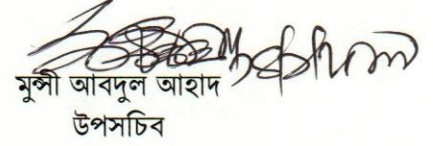 মুন্সী আবদুল আহাদ
উপসচিব